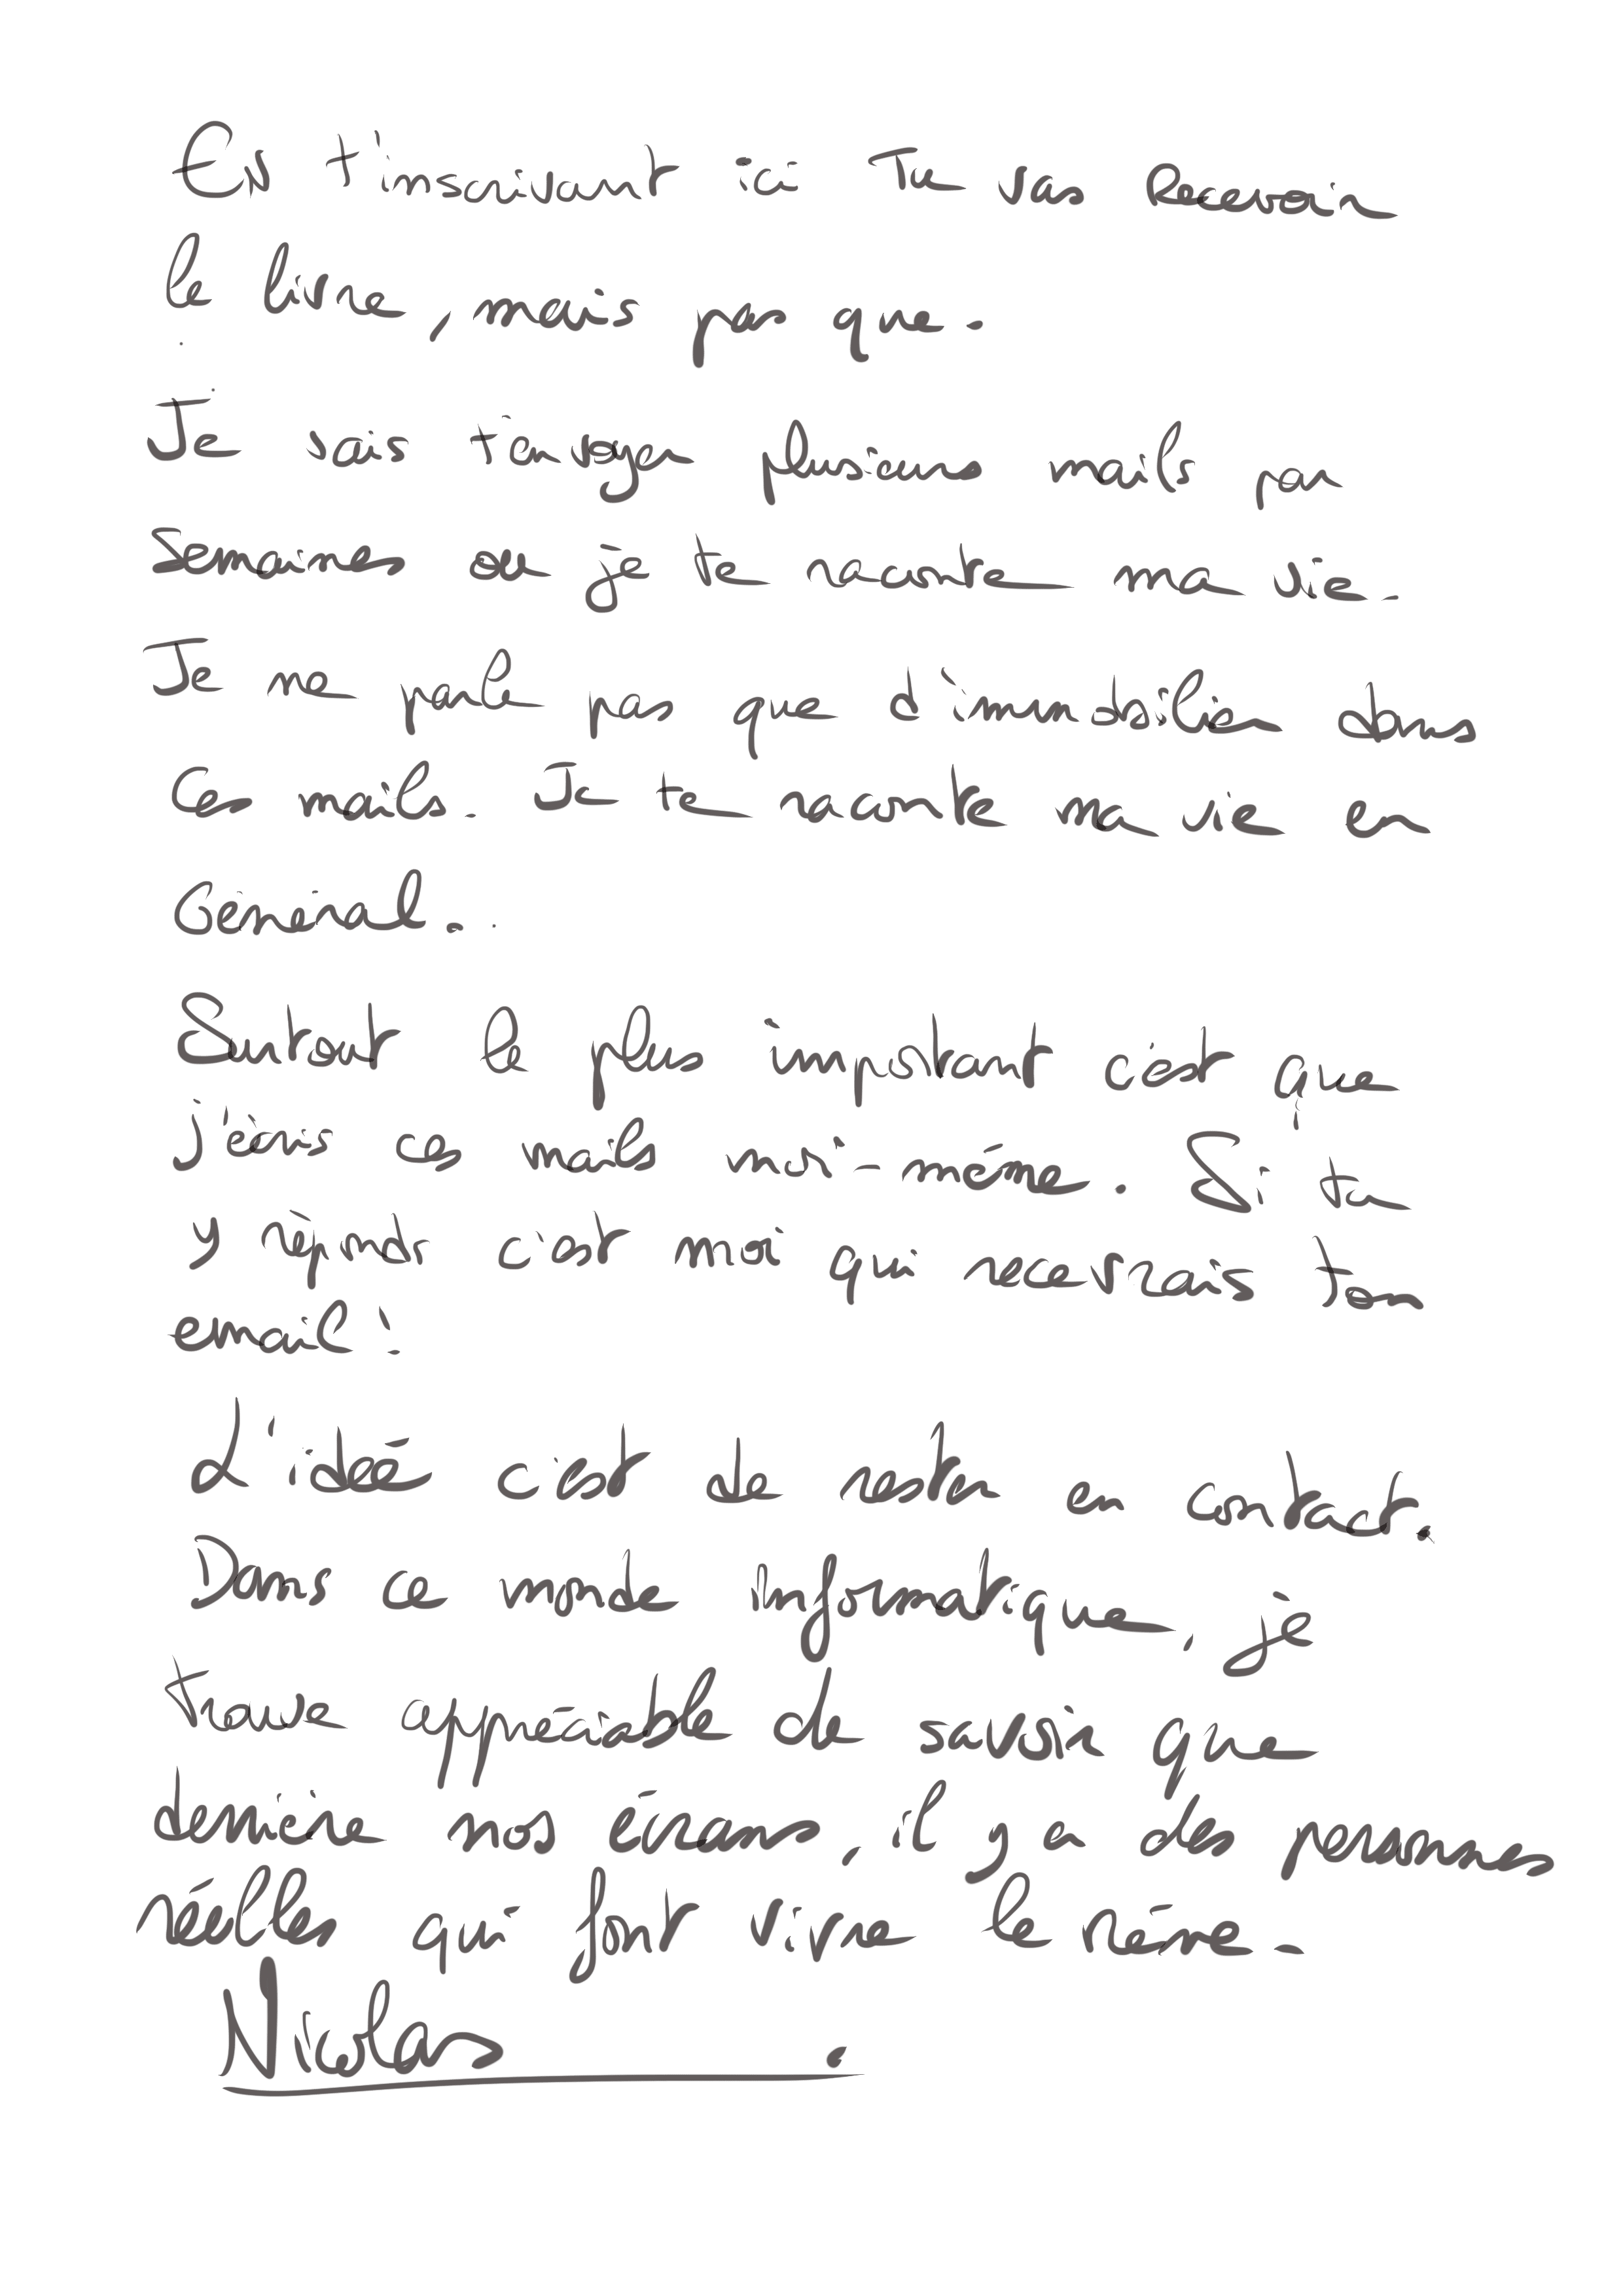 En t'inscrivant ici Tu vas Recevoir
le livre, mais pas que.
Je vais t'envoyer plusieurs mails par
Semaines ou je te raconte ma vie.
Je ne parle pas que d'immobilier dans
Ces mails. Je te raconte ma vie en
Général.
Surtout le plus important c'est que
j'écris ces mails moi-même. Si tu
y réponds c'est moi qui recevrais ton
email!
L'idée c'est de rester en contact.
Dans ce monde informatique, je
trouve appréciable de savoir que
derrière nos écrans, il y a des personnes
réelles qui font vivre le rêve.
Nicolas